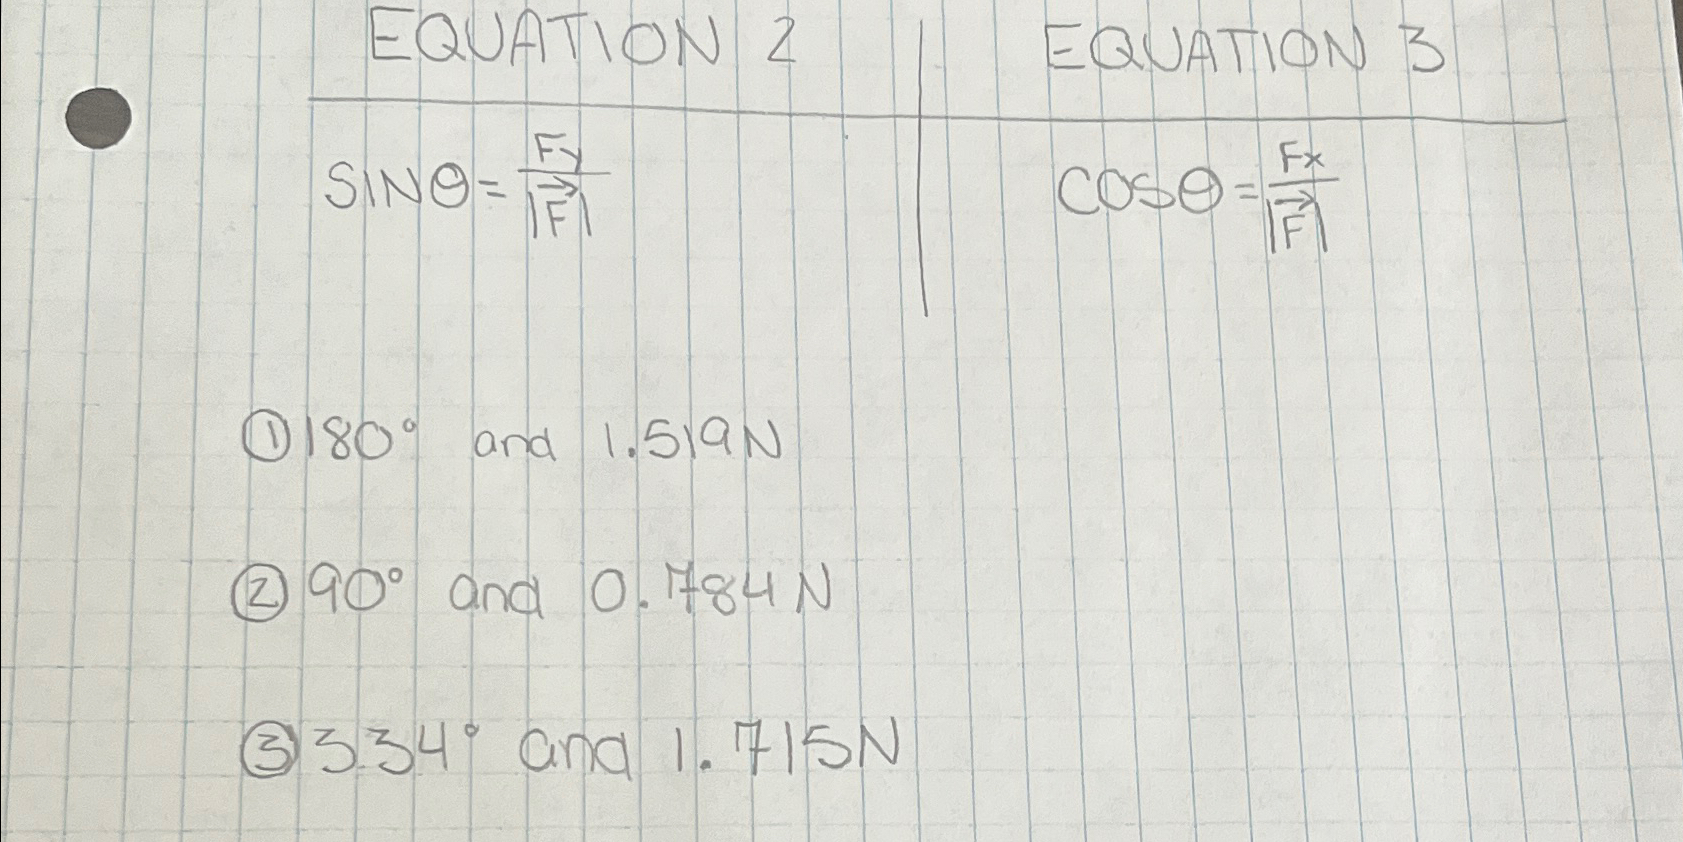 EQUATION 2 EQUATION 3
SINθ = Fy/|F⃗| COSθ = Fx/|F⃗|
① 180° and 1.519N
② 90° and 0.784N
③ 334° and 1.715N